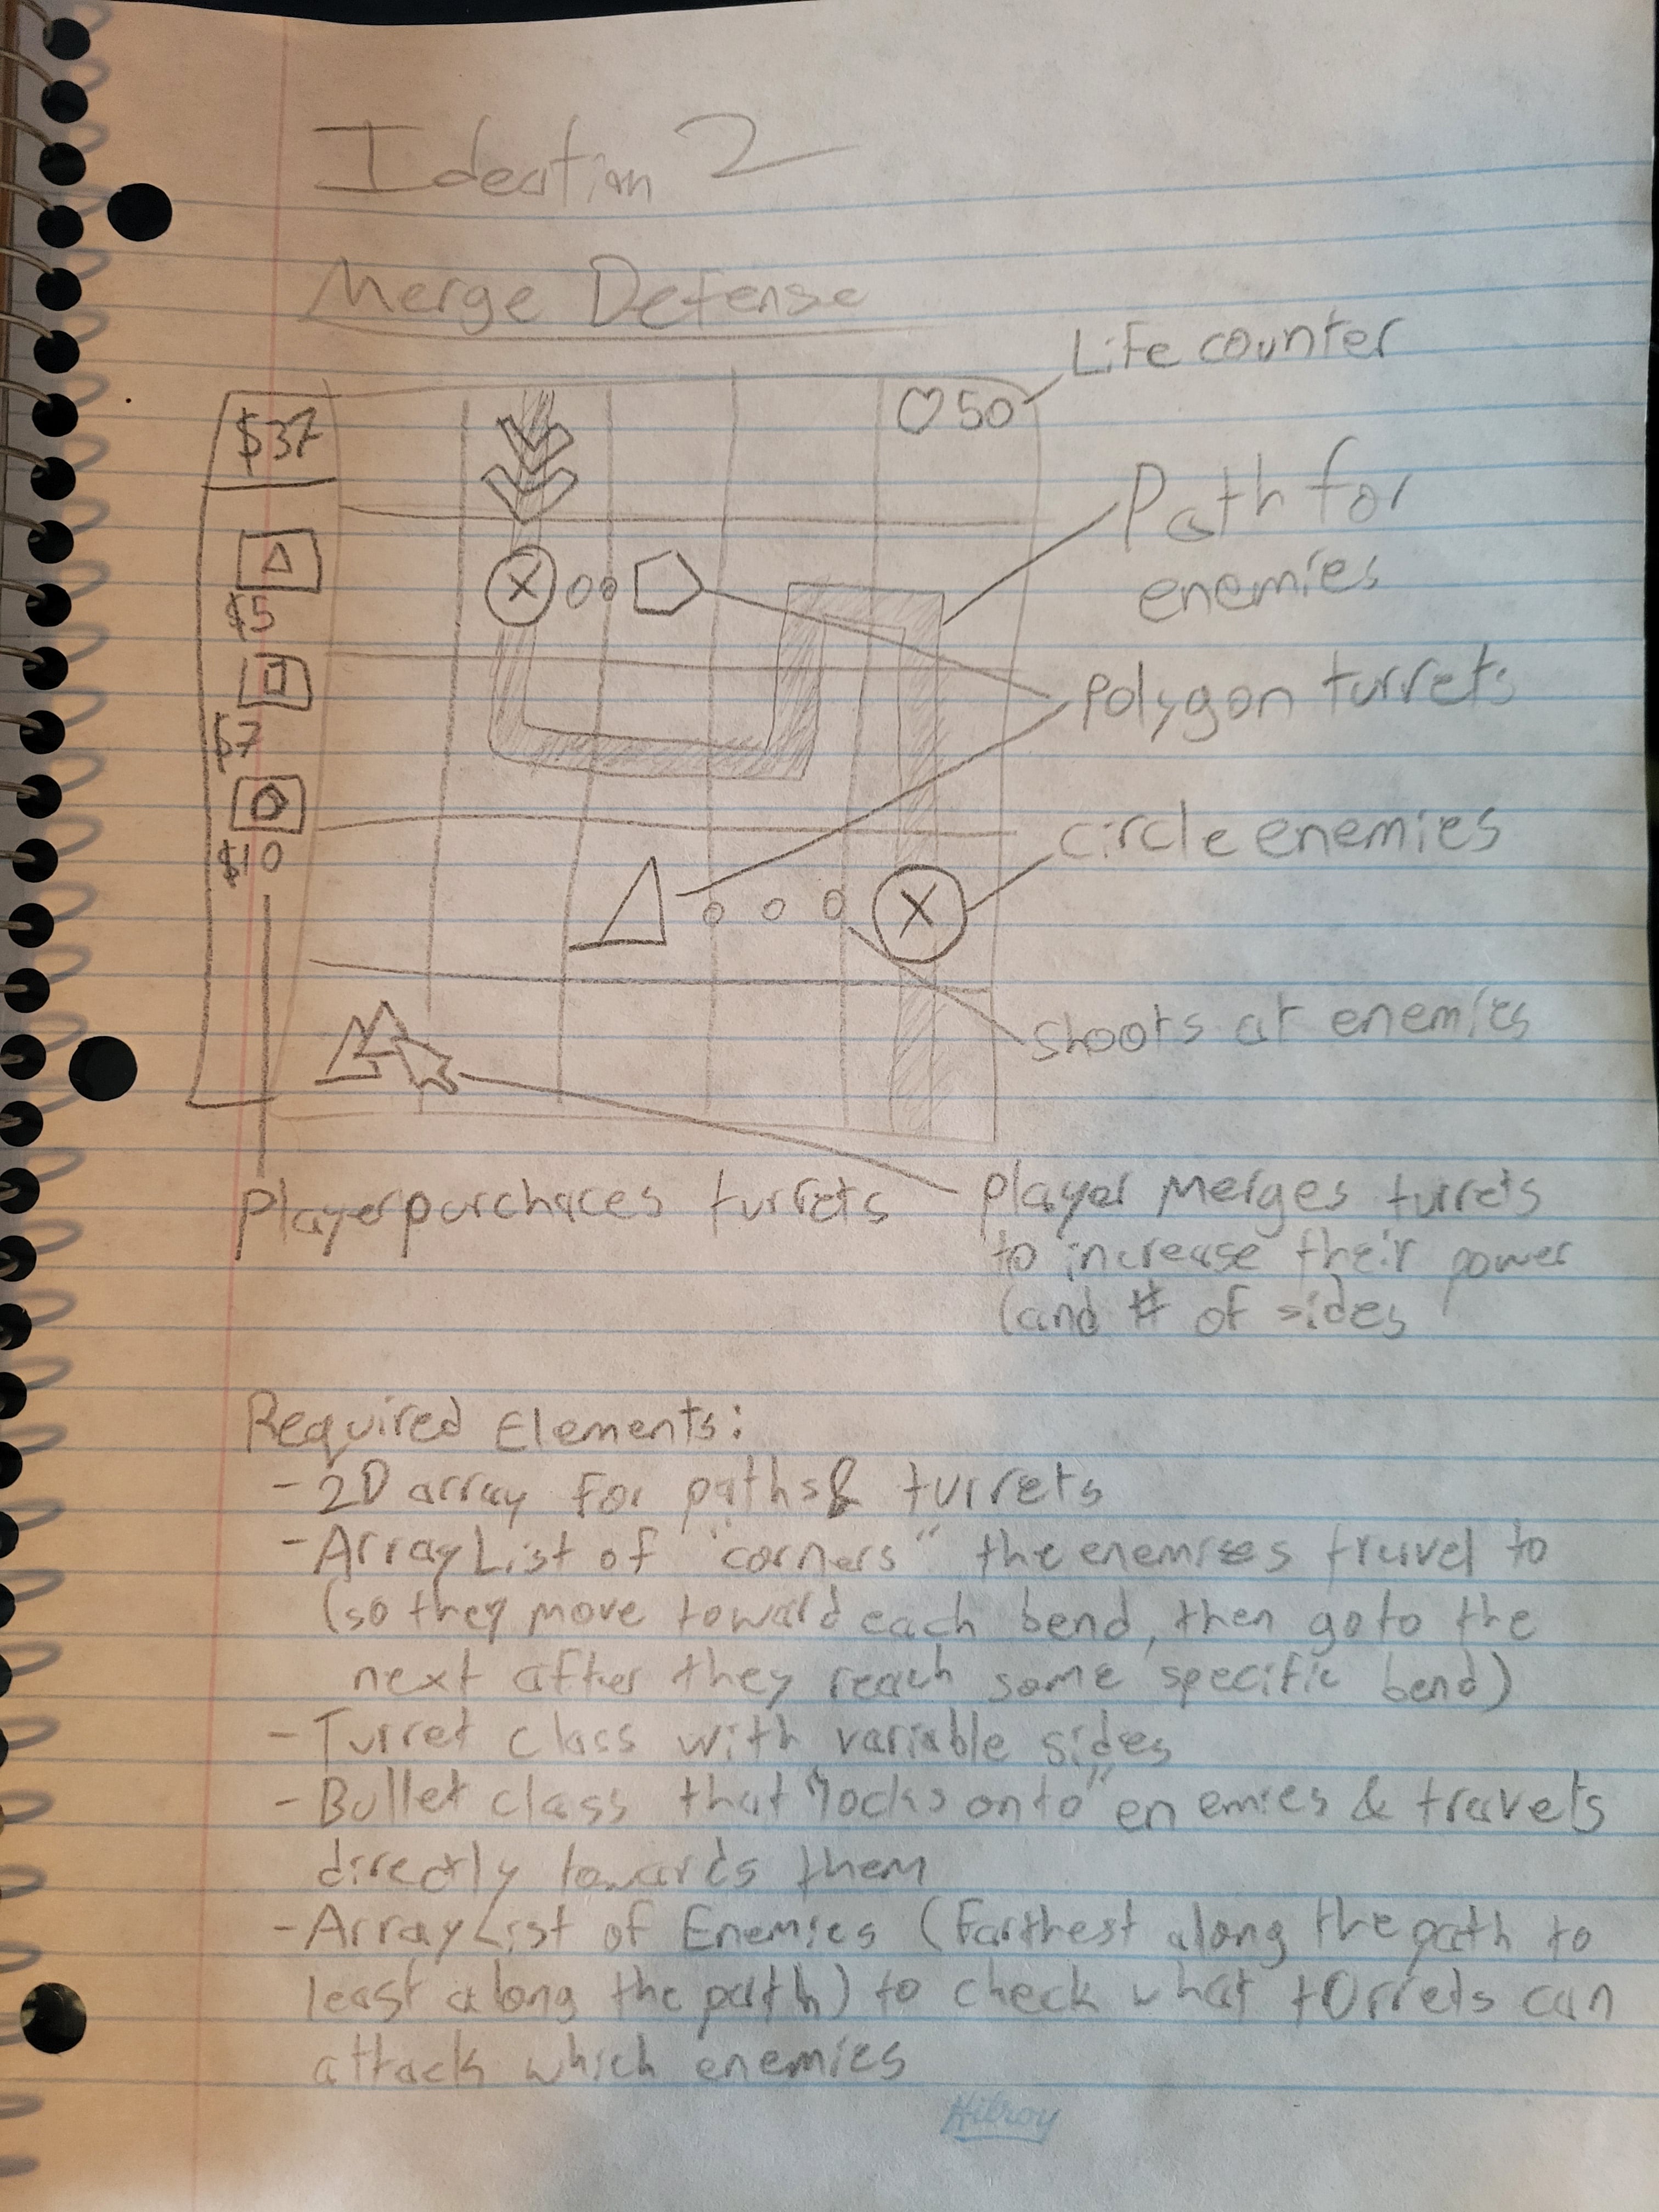 Ideation 2
Merge Defense
Life counter
$37
♡50
Path for
enemies
$5
polygon turrets
$7
circle enemies
$10
shoots at enemies
Player purchaces turrets
player Merges turrets
to increase their power
(and # of sides
Required Elements:
- 2D array for paths & turrets
- ArrayList of "corners" the enemies travel to
(so they move toward each bend, then go to the
next after they reach some specific bend)
- Turret class with variable sides
- Bullet class that "locks onto" enemies & travels
directly towards them
- ArrayList of Enemies (farthest along the path to
least along the path) to check what turrets can
attack which enemies
Hilroy